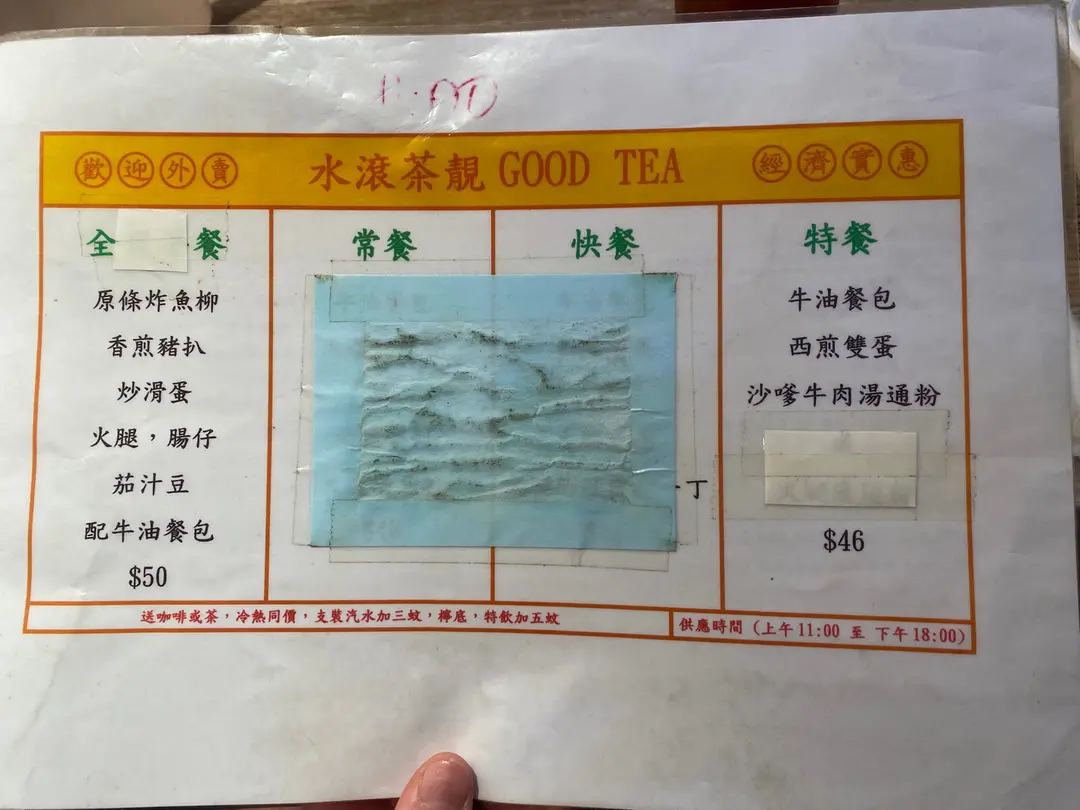 歡迎外賣 水滾茶靚 GOOD TEA 經濟實惠
全 餐
原條炸魚柳
香煎豬扒
炒滑蛋
火腿，腸仔
茄汁豆
配牛油餐包
$50
常餐
快餐
丁
特餐
牛油餐包
西煎雙蛋
沙嗲牛肉湯通粉
$46
送咖啡或茶，冷熱同價，支裝汽水加三蚊，檸底，特飲加五蚊
供應時間 (上午11:00 至 下午18:00)